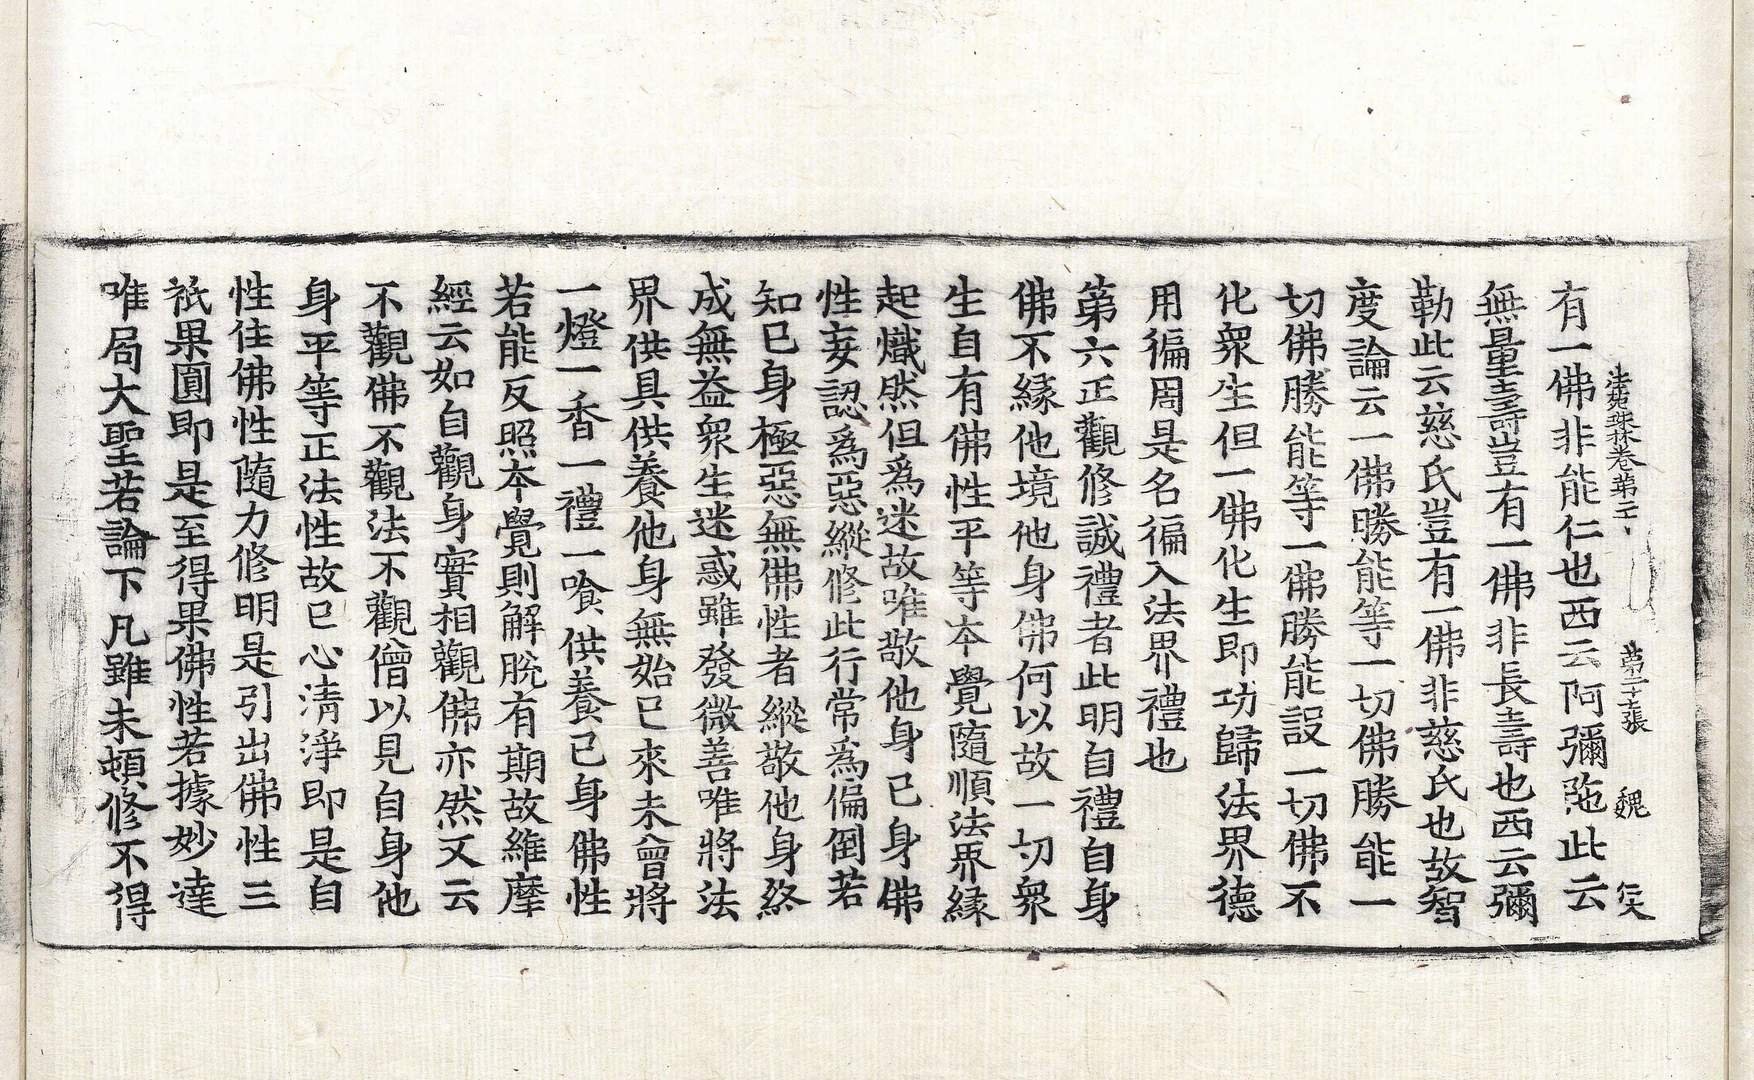 法苑珠林卷第二十 第二十七張 魏
有一佛非能仁也西云阿彌陁此云
無量壽豈有一佛非長壽也西云彌
勒此云慈氏豈有一佛非慈氏也故智
度論云一佛勝能等一切佛勝能一
切佛勝能等一佛勝能設一切佛不
化衆生但一佛化生即功歸法界德
用徧周是名徧入法界禮也
第六正觀修誠禮者此明自禮自身
佛不緣他境他身佛何以故一切衆
生自有佛性平等夲覺隨順法界緣
起熾然但爲迷故唯敬他身已身佛
性妄認爲惡縱修此行常爲偏倒若
知已身極惡無佛性者縱敬他身終
成無益衆生迷惑雖發微善唯將法
界供具供養他身無始已來未曾將
一燈一香一禮一飡供養已身佛性
若能反照夲覺則解脫有期故維摩
經云如自觀身實相觀佛亦然又云
不觀佛不觀法不觀僧以見自身他
身平等正法性故已心清淨即是自
性住佛性隨力修明是引出佛性三
祇果圓即是至得果佛性若據妙達
唯局大聖若論下凡雖未頓修不得